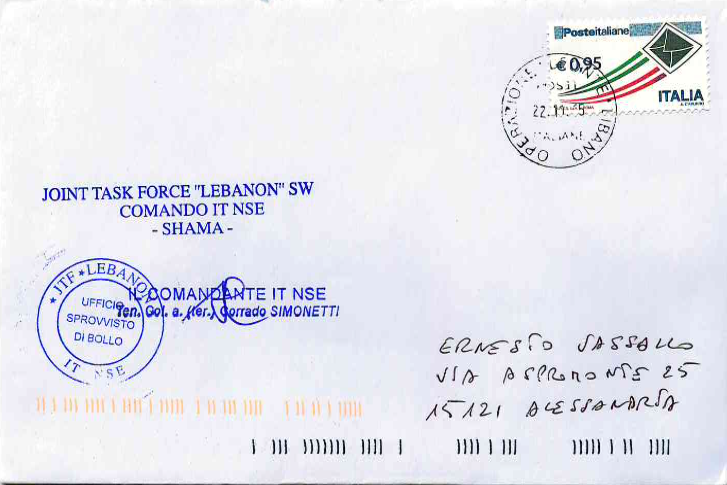 Posteitaliane
€ 0,95
ITALIA
OPERAZIONE LEONTE LIBANO
22.11. 5
JOINT TASK FORCE "LEBANON" SW
COMANDO IT NSE
- SHAMA -
★ JTF ★ LEBANON
UFFICIO
SPROVVISTO
DI BOLLO
IT NSE
IL COMANDANTE IT NSE
Ten. Col. a. (ter.) Corrado SIMONETTI
ERNESTO VASSALLO
VIA ASPROMONTE 25
15121 ALESSANDRIA